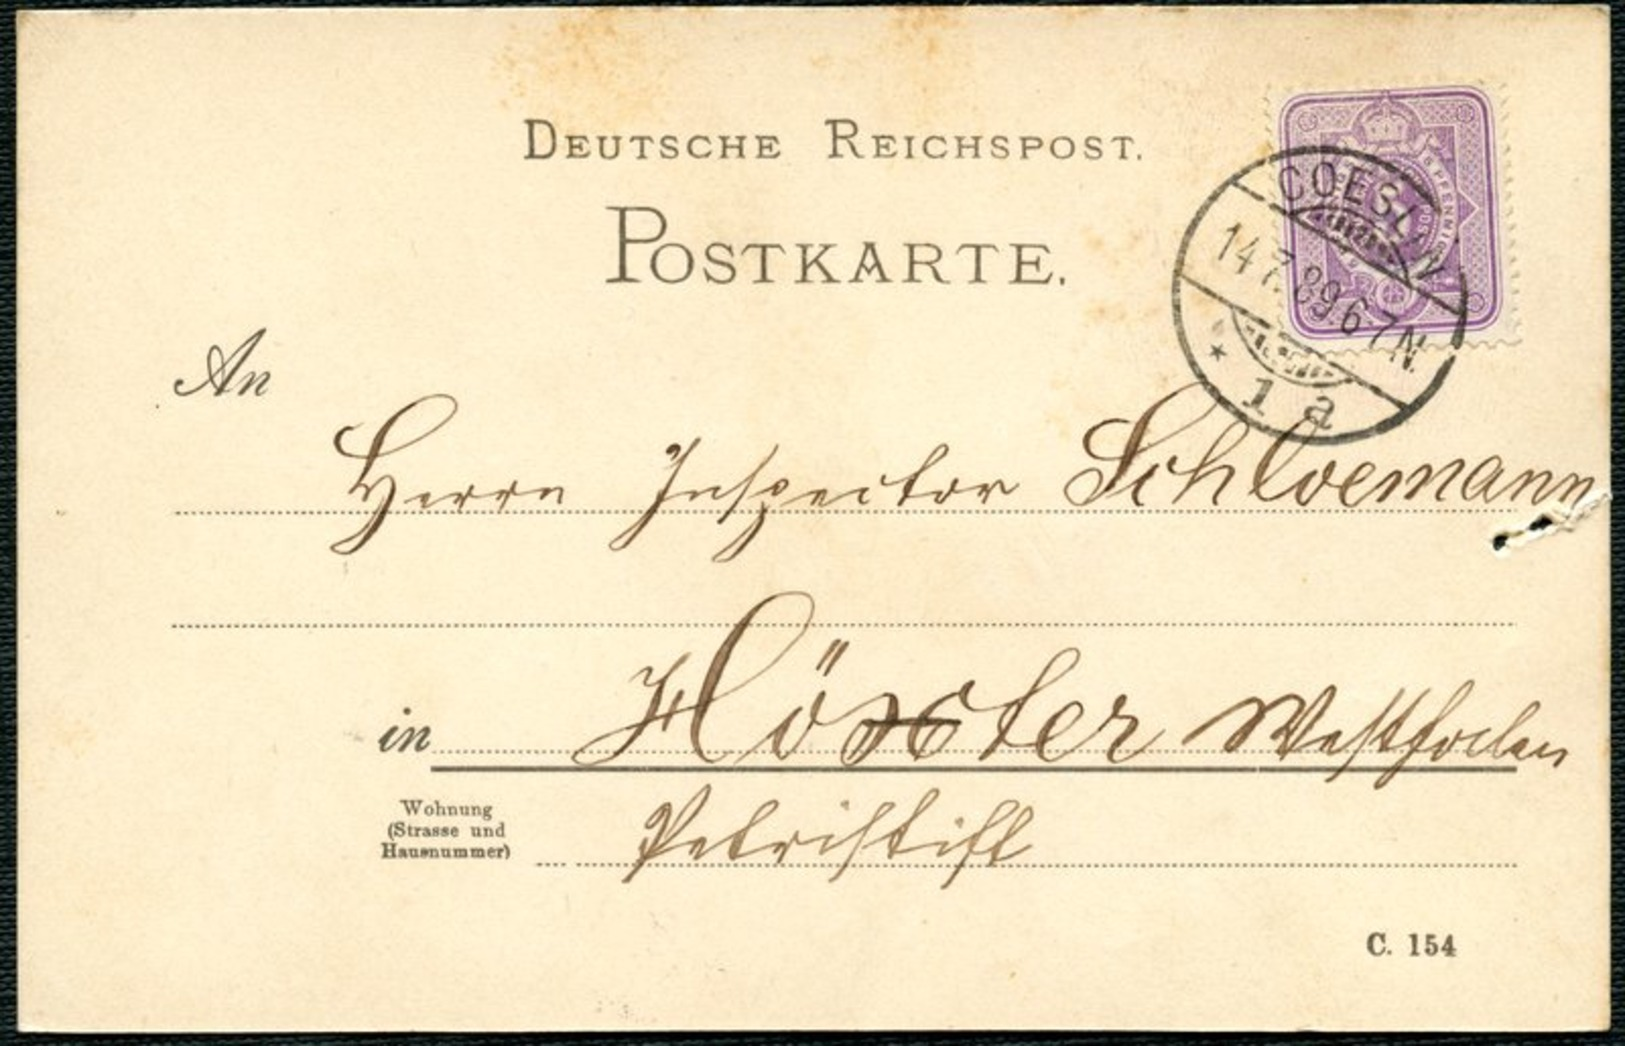 DEUTSCHE REICHSPOST.
POSTKARTE.
5 PFENNIG
COESLIN
14 7. 89. 6-7N.
* 1 a
An
Herrn Inspector Schloemann
in Höxter Westfalen
Wohnung
(Strasse und
Hausnummer)
Petristift
C. 154